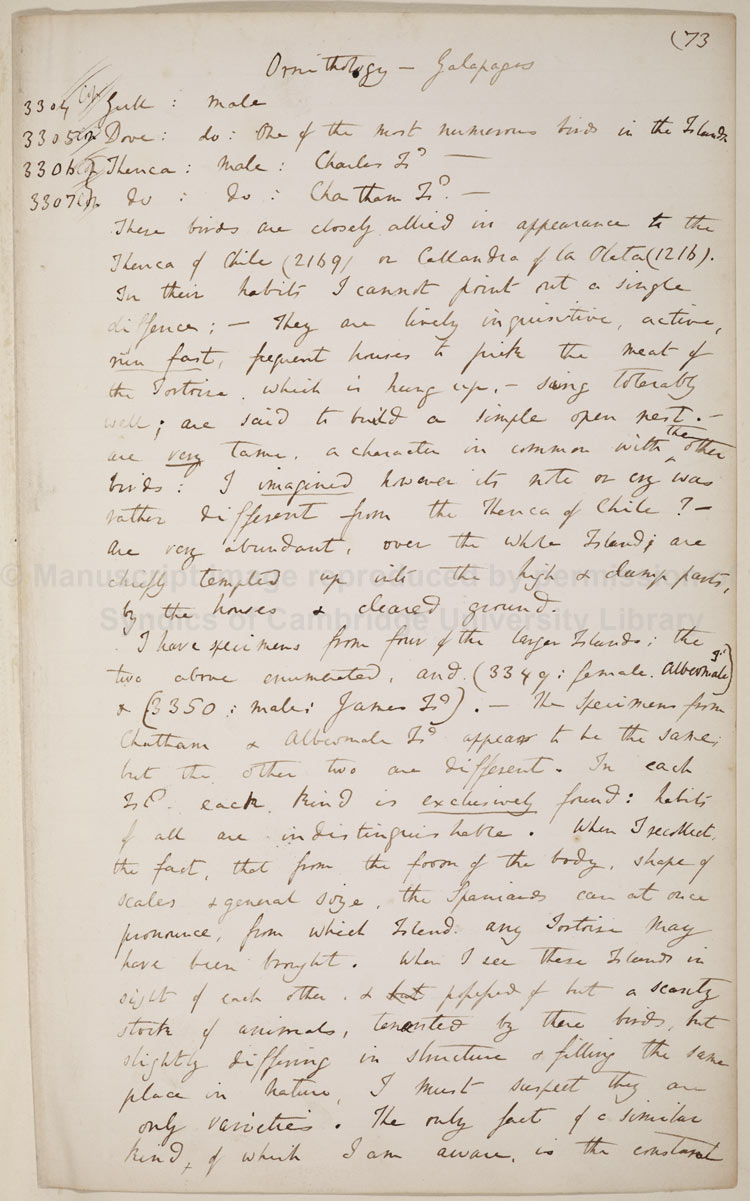 (73
Ornithology — Galapagos
3304 Gull : male
3305 Dove : do : One of the most numerous birds in the Islands
3306 Thenca : Male : Charles Isd —
3307 do : do : Chatham Isd. —
These birds are closely allied in appearance to the
Thenca of Chile (2169) or Callandra of la Plata (1216).
In their habits I cannot point out a single
diffence; — They are lively inquisitive, active,
run fast, frequent houses to pick the meat of
the Tortoise, which is hung up, — sing tolerably
well; are said to build a simple open nest. —
are very tame, a character in common with the other
birds : I imagined however its note or cry was
rather different from the Thenca of Chile? —
are very abundant, over the whole Island; are
chiefly tempted up into the high & damp parts,
by the houses & cleared ground.
I have specimens from four of the larger Islands; the
two above enumerated, and (3349: female. Albermale Isd)
& (3350: male: James Isd). — The specimens from
Chatham & Albermale Isd appear to be the same;
but the other two are different. In each
Isld. each kind is exclusively found: habits
of all are indistinguishable. When I recollect,
the fact, that from the form of the body, shape of
scales & general size, the Spaniards can at once
pronounce, from which Island any Tortoise may
have been brought. When I see these Islands in
sight of each other, & but possessed of but a scanty
stock of animals, tenanted by these birds, but
slightly differing in structure & filling the same
place in Nature, I must suspect they are
only varieties. The only fact of a similar
kind of which I am aware, is the constant
© Manuscript image reproduced by permission
Syndics of Cambridge University Library